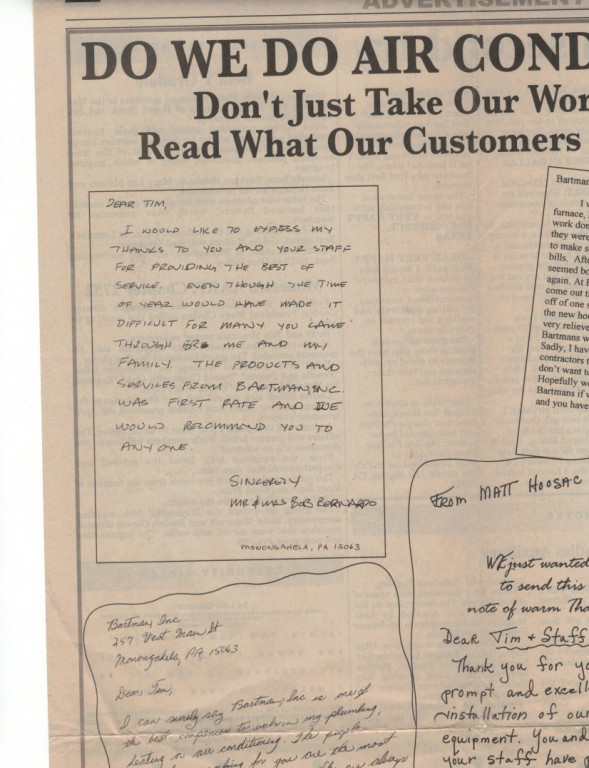 ADVERTISEMENT
DO WE DO AIR COND
Don't Just Take Our Wor
Read What Our Customers
DEAR TIM,
I WOULD LIKE TO EXPRESS MY
THANKS TO YOU AND YOUR STAFF
FOR PROVIDING THE BEST OF
SERVICE. EVEN THOUGH THE TIME
OF YEAR WOULD HAVE MADE IT
DIFFICULT FOR MANY YOU CAME
THROUGH FOR ME AND MY
FAMILY. THE PRODUCTS AND
SERVICES FROM BARTMAN INC.
WAS FIRST RATE AND WE
WOULD RECOMMEND YOU TO
ANYONE.
SINCERELY
MR & MRS BOB BERNARDO
MONONGAHELA, PA 15063
Bartman
I w
furnace,
work don
they were
to make s
bills. Afte
seemed bo
again. At
come out t
off of one
the new hou
very relieve
Bartmans w
Sadly, I hav
contractors t
don't want to
Hopefully w
Bartmans if
and you have
FROM MATT HOOSAC
We just wanted
to send this
note of warm Tha
Dear Tim & Staff
Thank you for yo
prompt and excell
installation of our
equipment. You and
your staff have
Bartman, Inc
257 West Main St
Monongahela, PA 15063
Dear Tim,
I can surely say Bartman, Inc is one of
the best companies to work on my plumbing,
heating or air conditioning. The people
working for you are the most
always